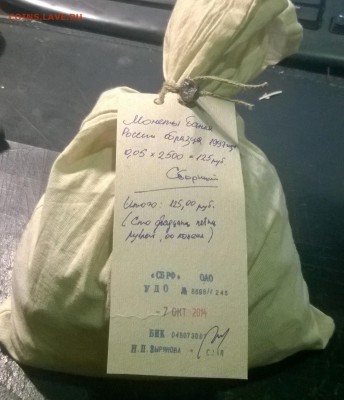 COINS.LAVE.RU
Монеты Банка
России образца 1997 года
0,05 x 2500 = 125 руб
Сборный
Итого: 125,00 руб.
(Сто двадцать пять
рублей, 00 копеек)
«СБРФ» ОАО
УДО №
-7 ОКТ 2014
БИК